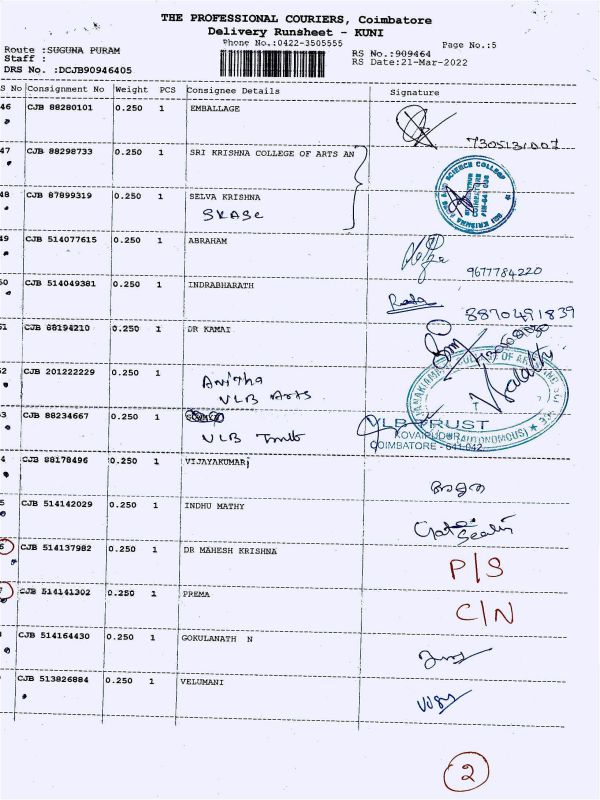 THE PROFESSIONAL COURIERS, Coimbatore
Delivery Runsheet - KUNI
Phone No.:0422-3505555 Page No.:5
Route :SUGUNA PURAM RS No.:909464
Staff : RS Date:21-Mar-2022
DRS No. :DCJB90946405
S No Consignment No Weight PCS Consignee Details Signature
46 CJB 88280101 0.250 1 EMBALLAGE
7305131007
47 CJB 88298733 0.250 1 SRI KRISHNA COLLEGE OF ARTS AN
48 CJB 87899319 0.250 1 SELVA KRISHNA
SKASC
49 CJB 514077615 0.250 1 ABRAHAM
9677784220
50 CJB 514049381 0.250 1 INDRABHARATH
8870491839
51 CJB 88194210 0.250 1 DR KAMAI
52 CJB 201222229 0.250 1 Anitha
VLB Arts
53 CJB 88234667 0.250 1
VLB Trust
VLB TRUST
KOVAIPUDUR (AUTONOMOUS)
COIMBATORE - 641 042
4 CJB 88178496 0.250 1 VIJAYAKUMARI
5 CJB 514142029 0.250 1 INDHU MATHY
6 CJB 514137982 0.250 1 DR MAHESH KRISHNA P/S
7 CJB 514141302 0.250 1 PREMA C/N
CJB 514164430 0.250 1 GOKULANATH N
CJB 513826884 0.250 1 VELUMANI
2